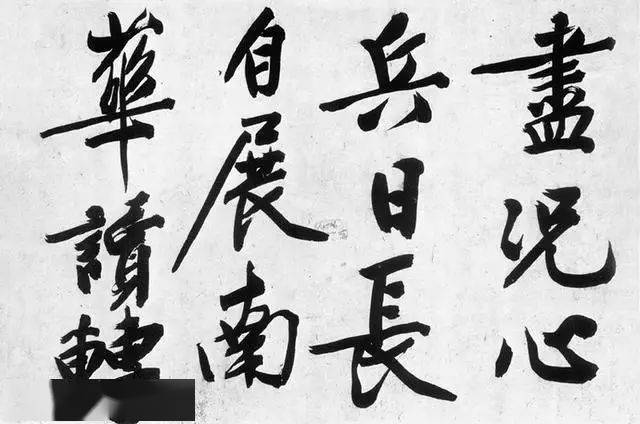 盡况心
兵日長
自展南
華讀轉